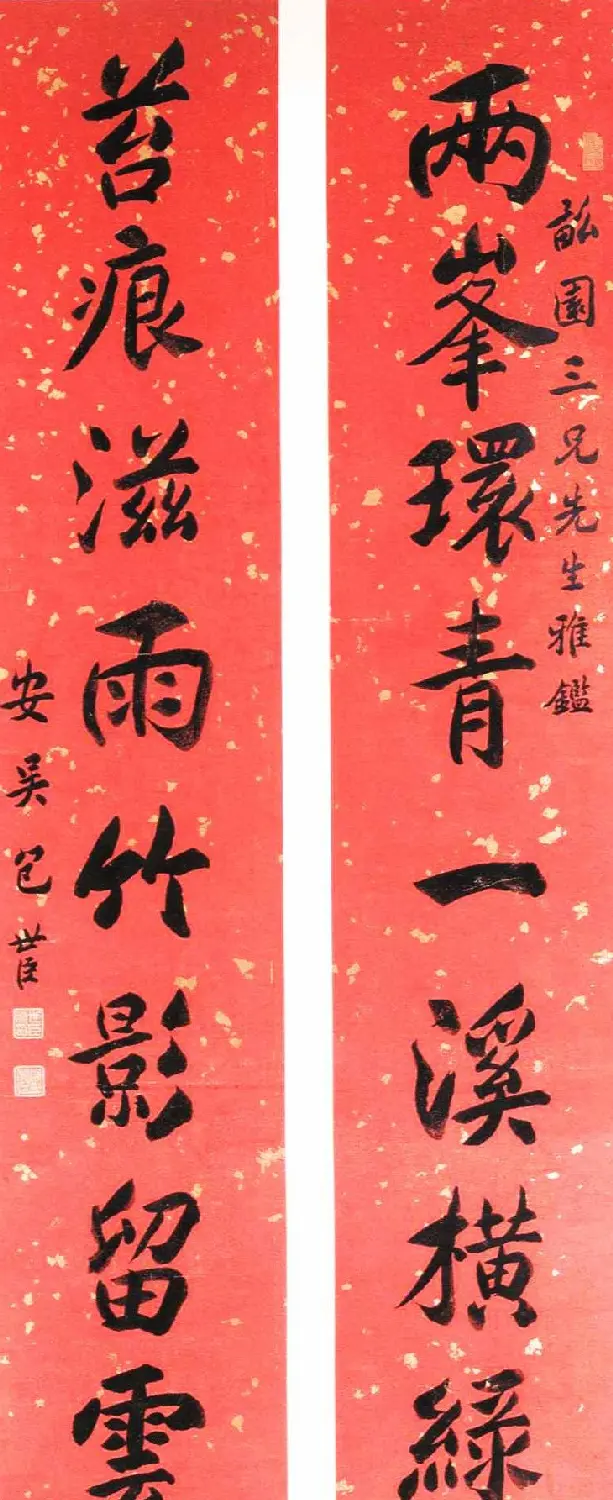 園三兄先生雅鑑
兩峯環青一溪橫綠
苔痕滋雨竹影留雲
安吳包世臣